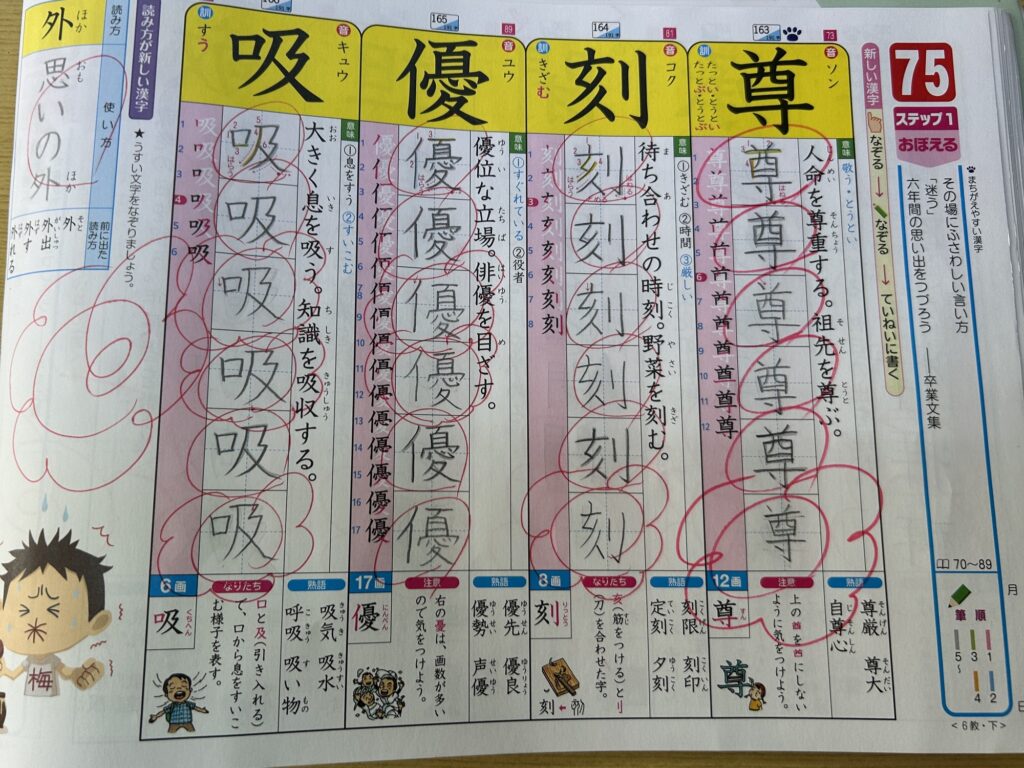 75
ステップ1
おぼえる
まちがえやすい漢字
その場にふさわしい言い方
「迷う」
六年間の思い出をつづろう
――卒業文集
70〜89
筆順
1
2
3
4
5〜
月
日
<6教・下>
新しい漢字
なぞる→なぞる→ていねいに書く
163
73
尊
音 ソン
訓 たっとい・とうとい
たっとぶ・とうとぶ
意味 敬う・とうとい
人命を尊重する。祖先を尊ぶ。
尊
尊
尊
尊
尊
尊
12画
尊
注意
上の酋を酉にしないように気をつけよう。
尊
熟語
尊厳 尊大
自尊心
164
81
刻
音 コク
訓 きざむ
意味 ①きざむ ②時間 ③厳しい
待ち合わせの時刻。野菜を刻む。
刻
刻
刻
刻
刻
刻
8画
刻
りっとう
なりたち
亥(筋をつける)とリ(刀)を合わせた字。
熟語
刻限 刻印
定刻 夕刻
165
89
優
音 ユウ
意味 ①すぐれている ②役者
優位な立場。俳優を目ざす。
優
優
優
優
優
優
17画
優
にんべん
注意
右の憂は、画数が多いので気をつけよう。
熟語
優先 優良
優勢 声優
吸
音 キュウ
訓 すう
意味 ①息をすう ②すいこむ
大きく息を吸う。知識を吸収する。
吸
吸
吸
吸
吸
吸
6画
吸
くちへん
なりたち
口と及(引き入れる)で、口から息をすいこむ様子を表す。
熟語
吸気 吸水
呼吸 吸い物
読み方が新しい漢字
★うすい文字をなぞりましょう。
読み方
使い方
前に出た読み方
外
ほか
思いの外
おも
ほか
外
外出
外す
外れる
梅